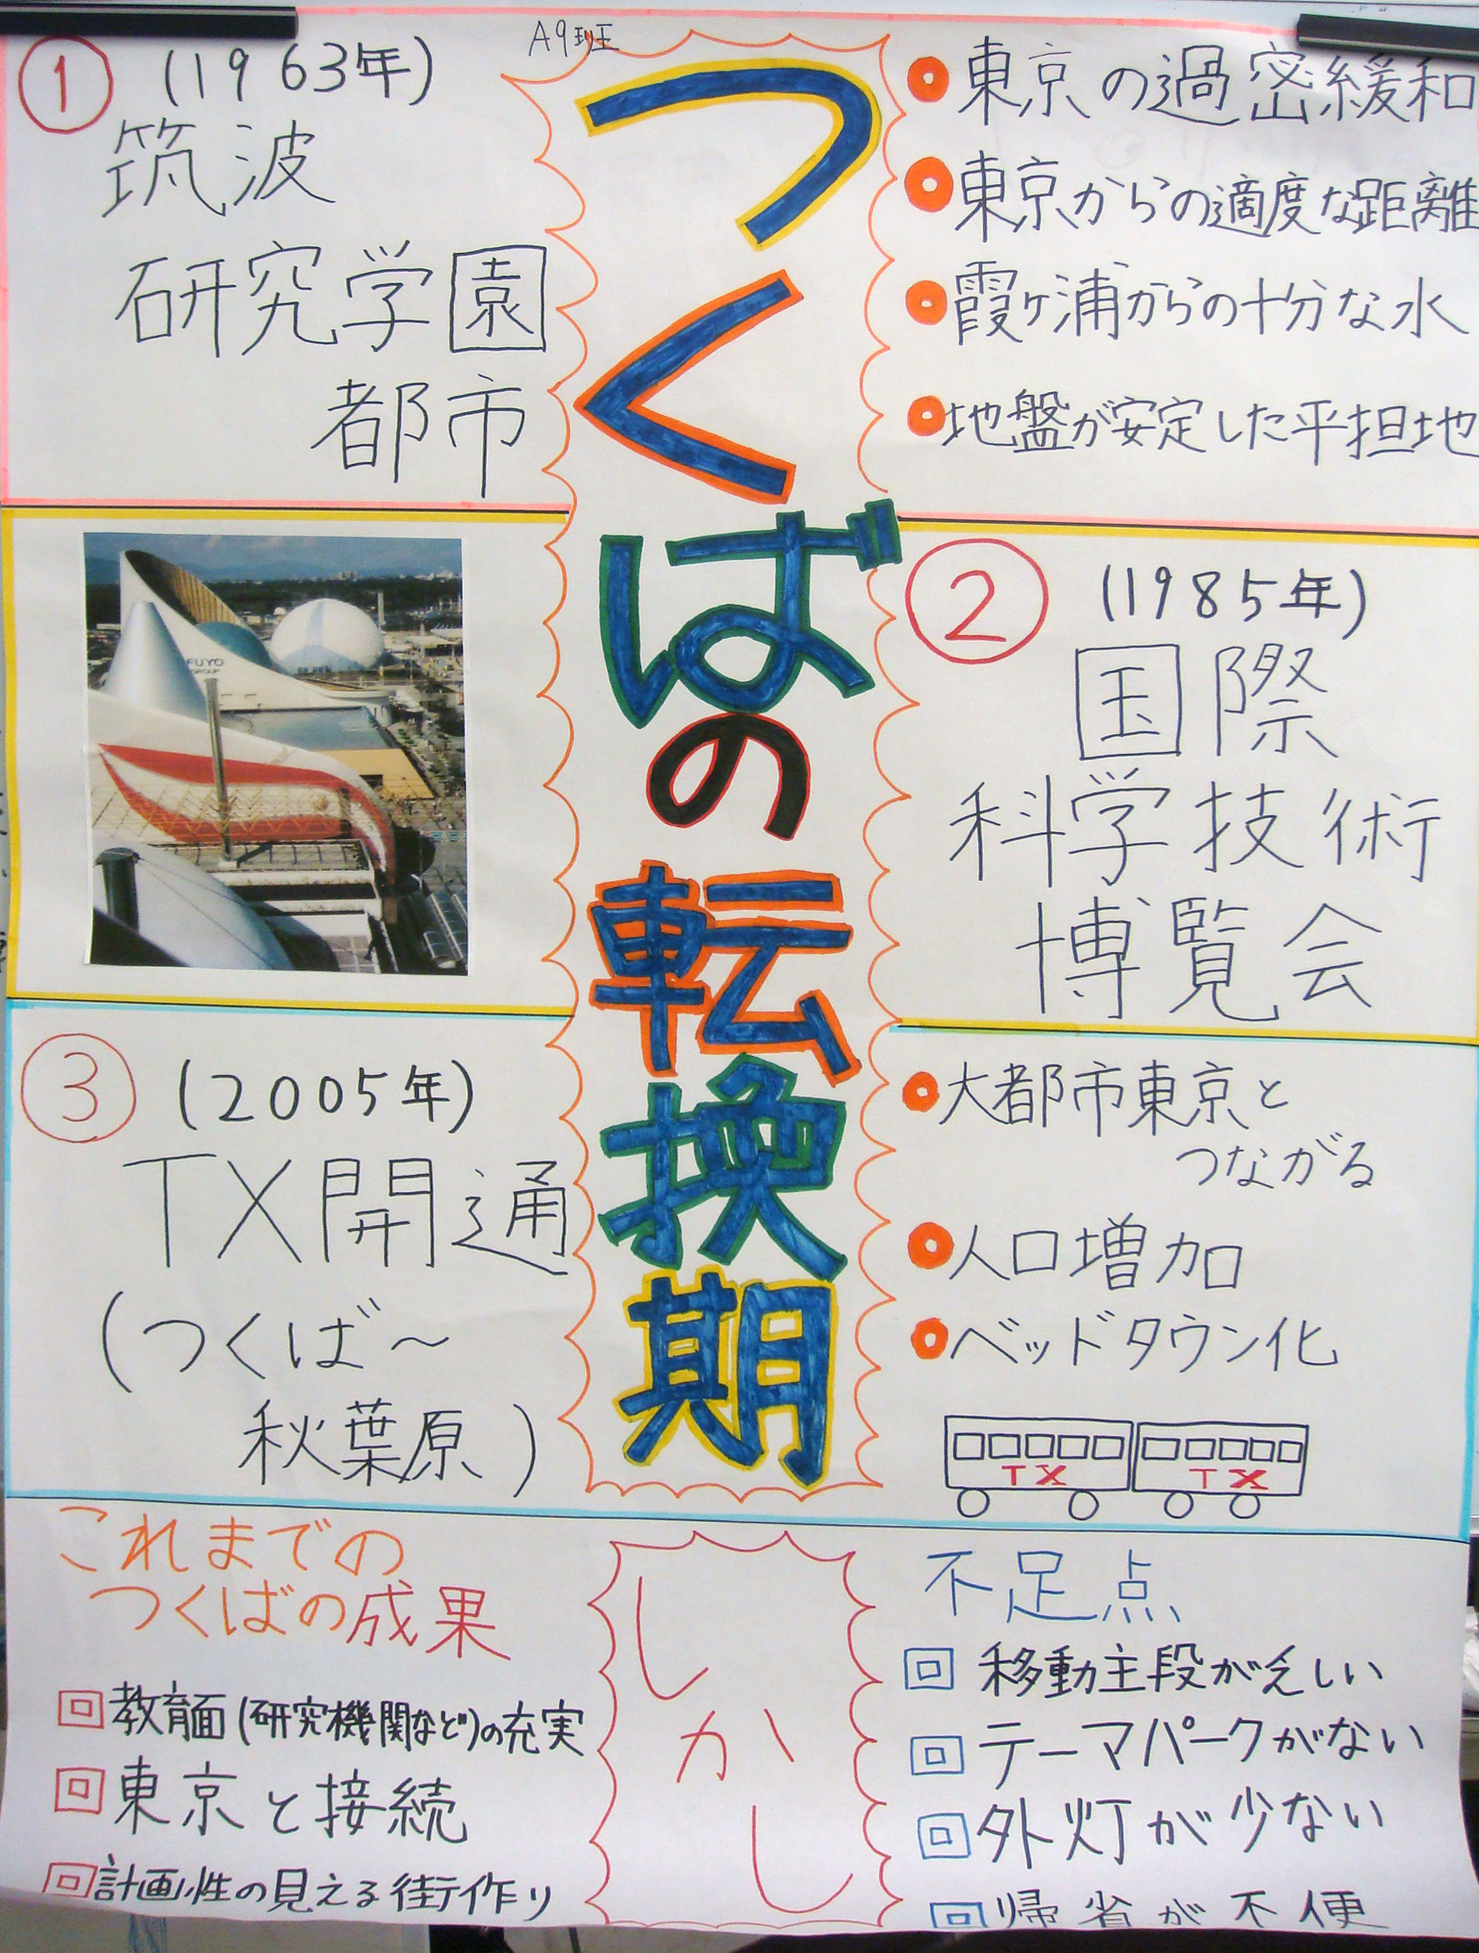 A9班
つくばの転換期
① (1963年)
筑波
研究学園
都市
東京の過密緩和
東京からの適度な距離
霞ヶ浦からの十分な水
地盤が安定した平担地
FUYO
GROUP
② (1985年)
国際
科学技術
博覧会
③ (2005年)
TX開通
(つくば〜
秋葉原)
大都市東京と
つながる
人口増加
ベッドタウン化
TX TX
これまでの
つくばの成果
教育面(研究機関など)の充実
東京と接続
計画性の見える街作り
しかし
不足点
移動主段が乏しい
テーマパークがない
外灯が少ない
帰省が不便